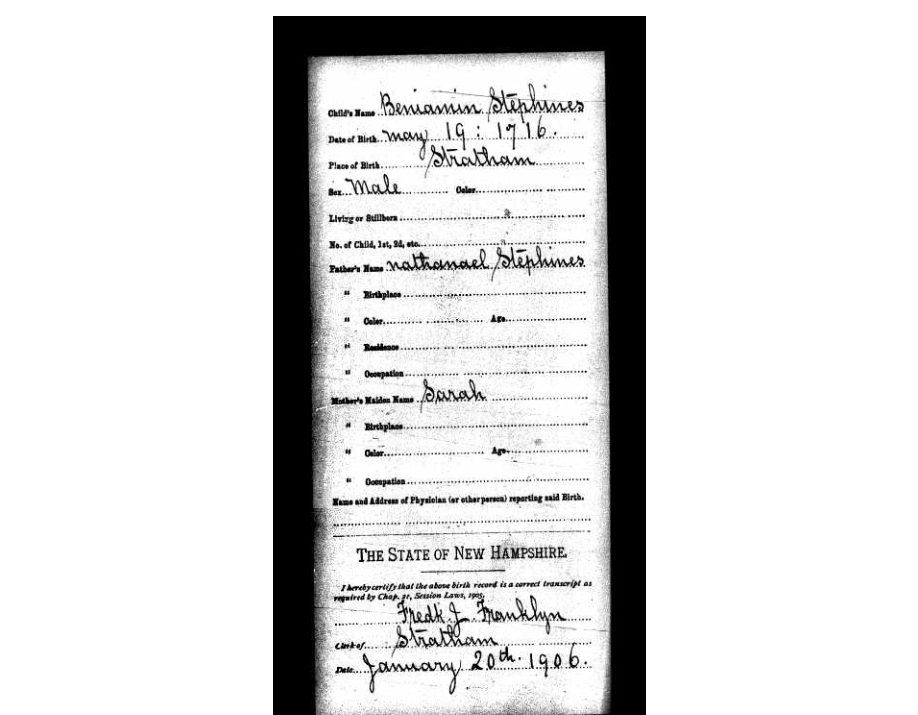 Child's Name Benjamin Stephines
Date of Birth May 19: 1716.
Place of Birth Stratham
Sex Male Color
Living or Stillborn
No. of Child, 1st, 2d, etc.
Father's Name Nathanael Stephines
" Birthplace
" Color Age
" Residence
" Occupation
Mother's Maiden Name Sarah
" Birthplace
" Color Age
" Occupation
Name and Address of Physician (or other person) reporting said Birth.
THE STATE OF NEW HAMPSHIRE.
I hereby certify that the above birth record is a correct transcript as
required by Chap. 21, Session Laws, 1905.
Fredk J. Franklyn
Clerk of Stratham
Date January 20th. 1906.